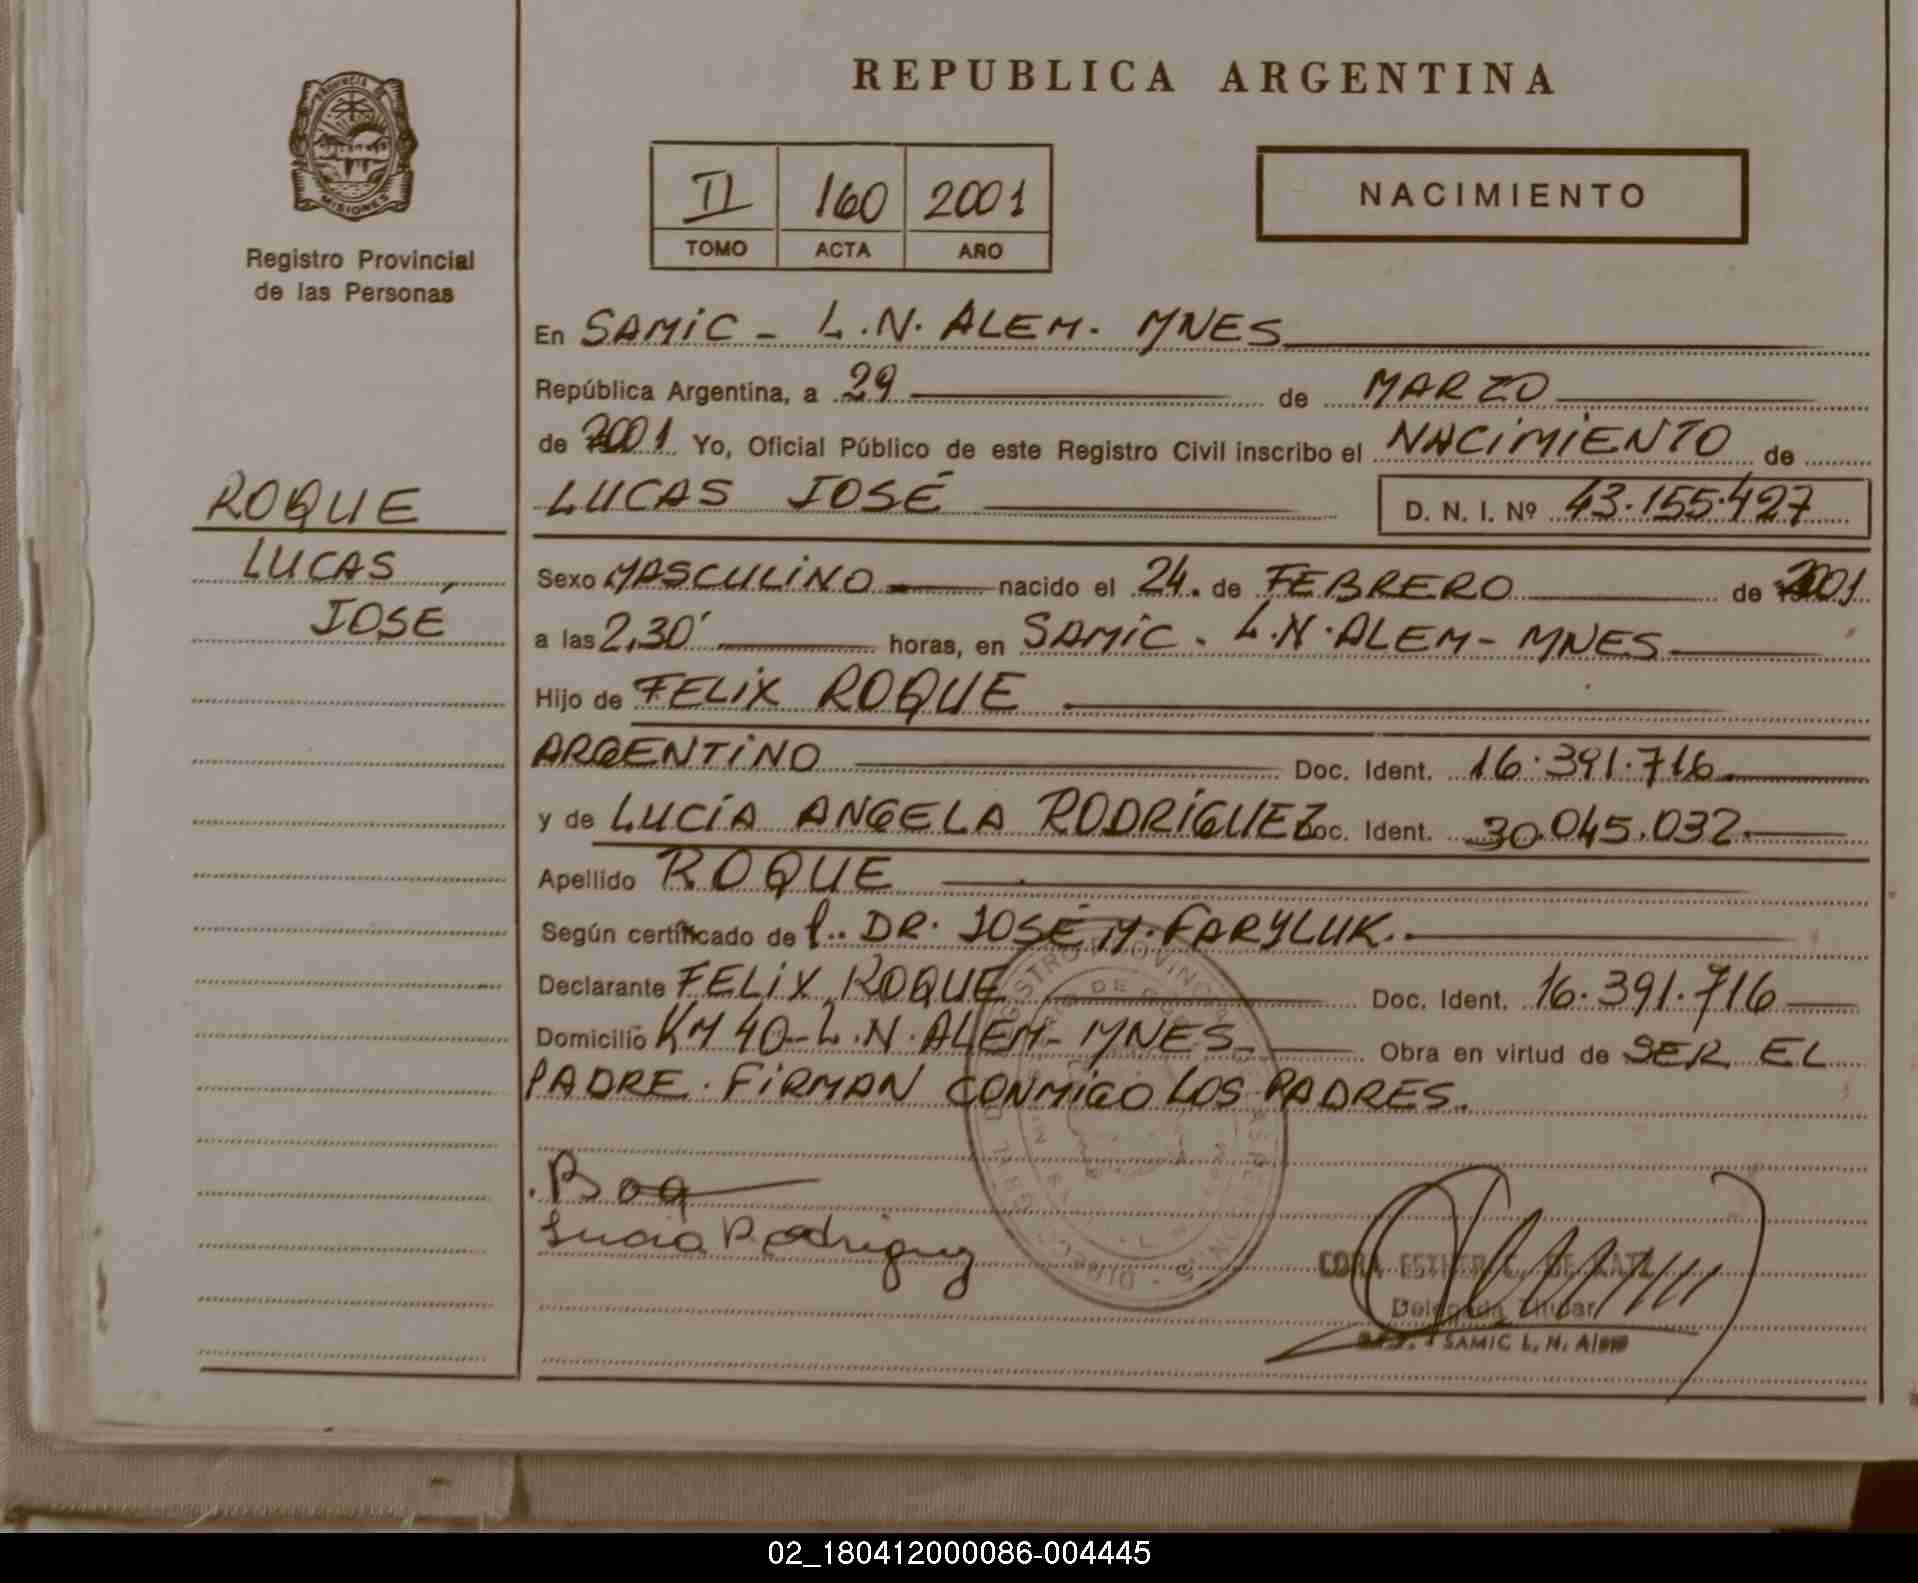 REPUBLICA ARGENTINA
PROVINCIA DE MISIONES
Registro Provincial
de las Personas
II 160 2001
TOMO ACTA AÑO
NACIMIENTO
ROQUE
LUCAS
JOSÉ
En SAMIC - L.N. ALEM. MNES
República Argentina, a 29 de MARZO
de 2001 Yo, Oficial Público de este Registro Civil inscribo el NACIMIENTO de
LUCAS JOSÉ D. N. I. Nº 43.155.427
Sexo MASCULINO nacido el 24. de FEBRERO de 2001
a las 2,30' horas, en SAMIC - L.N. ALEM - MNES
Hijo de FELIX ROQUE
ARGENTINO Doc. Ident. 16.391.716
y de LUCÍA ANGELA RODRÍGUEZ Doc. Ident. 30.045.032
Apellido ROQUE
Según certificado de l.. DR. JOSÉ M. FARYLUK.
Declarante FELIX ROQUE Doc. Ident. 16.391.716
Domicilio KM 40 - L.N. ALEM - MNES Obra en virtud de SER EL
PADRE. FIRMAN CONMIGO LOS PADRES.
Lucia Rodriguez
CORA ESTHER C. DE KATZ
Delegada Titular
SAMIC L. N. Alem
02_180412000086-004445